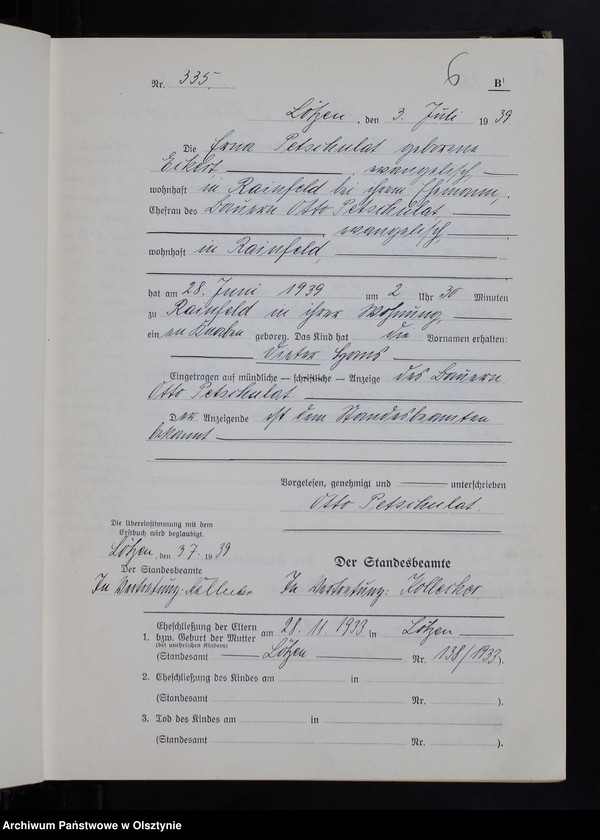 6
Nr. 335. B¹
Lötzen, den 3. Juli 1939
Die Erna Petschulat geborene
Eckert, evangelisch
wohnhaft in Rainfeld bei ihrem Ehemann,
Ehefrau des Bauern Otto Petschulat
evangelisch,
wohnhaft in Rainfeld,
hat am 28. Juni 1939 um 2 Uhr 30 Minuten
zu Rainfeld in ihrer Wohnung,
ein en Knaben geboren. Das Kind hat die Vornamen erhalten:
Dieter Hans
Eingetragen auf mündliche — schriftliche — Anzeige des Bauern
Otto Petschulat.
Der Anzeigende ist dem Standesbeamten
bekannt
Vorgelesen, genehmigt und unterschrieben
Otto Petschulat.
Die Übereinstimmung mit dem
Erstbuch wird beglaubigt.
Lötzen, den 3.7. 1939
Der Standesbeamte
In Vertretung:
Der Standesbeamte
In Vertretung:
1. Eheschließung der Eltern
bzw. Geburt der Mutter am 28.11.1933 in Lötzen
(bei unehelichen Kindern)
(Standesamt Lötzen Nr. 138/1933).
2. Eheschließung des Kindes am in
(Standesamt Nr. ).
3. Tod des Kindes am in
(Standesamt Nr. ).
Archiwum Państwowe w Olsztynie